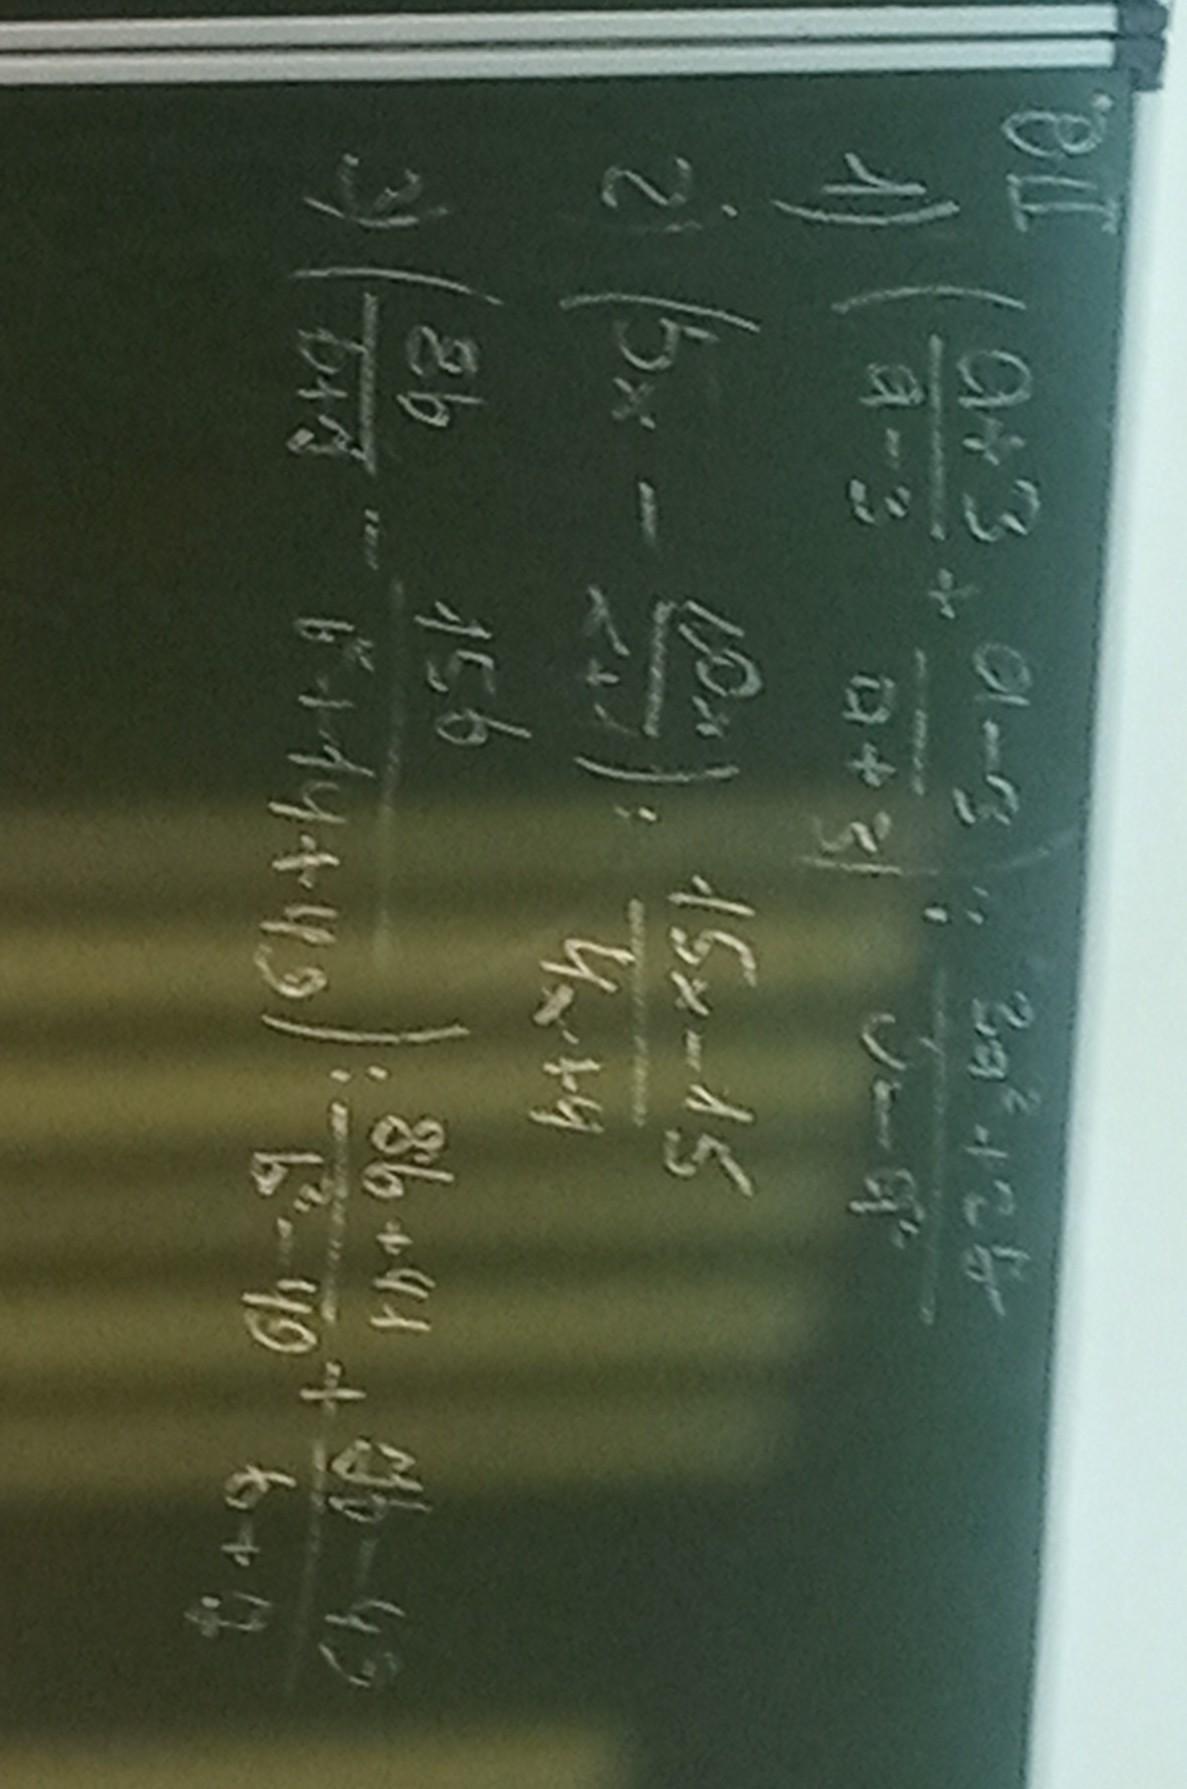 1) (a+3/a-3 + a-3/a+3) :
2) (5x - 10x/x+1) : 15x-15/4x+4
3) (8b/b+7 - 15b/b²+14b+49) : 8b+41/b²-49 + 7b-49/b+7